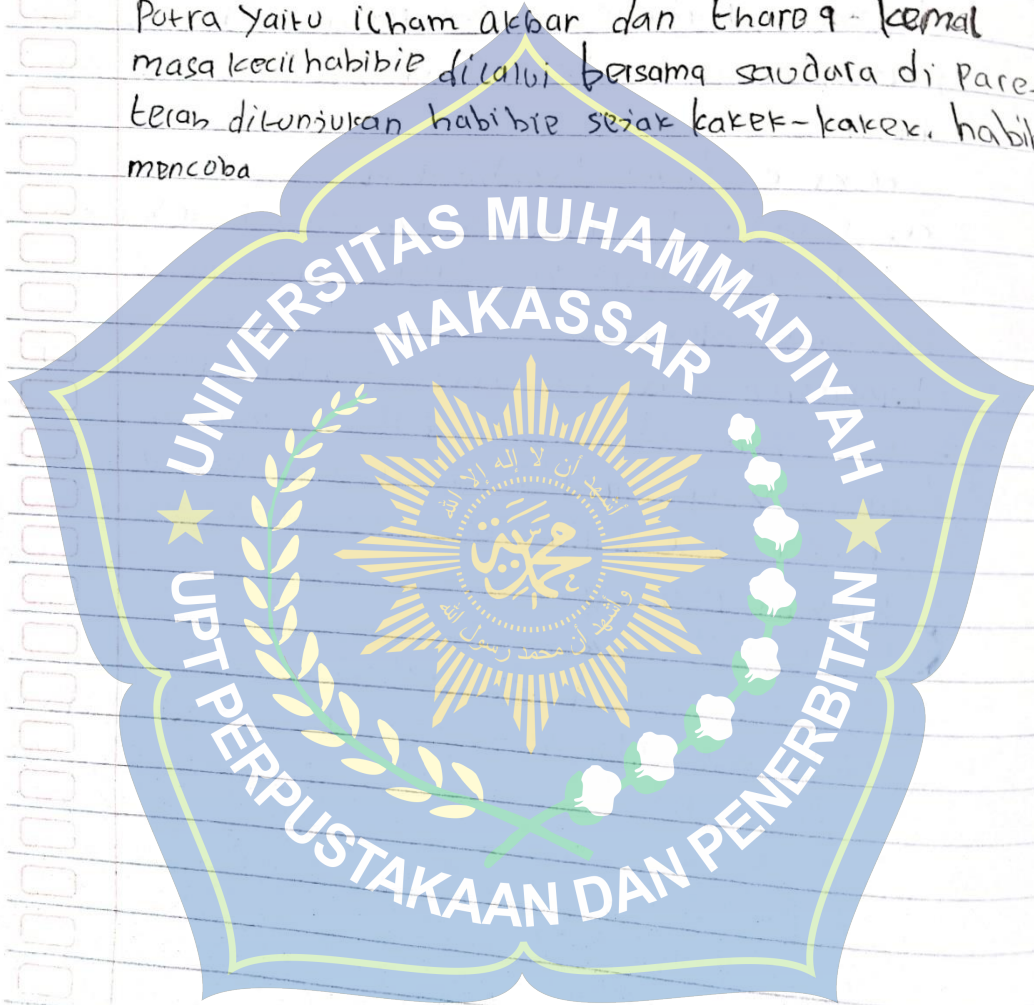 Putra Yaitu ilham akbar dan thareq - kemal
masa kecil habibie dilalui bersama saudara di Pare-
telah ditunjukan habibie sejak kakek-kakek. habib
mencoba
UNIVERSITAS MUHAMMADIYAH
MAKASSAR
أشهد أن لا إله إلا الله
محمدية
وأشهد أن محمد رسول الله
UPT PERPUSTAKAAN DAN PENERBITAN